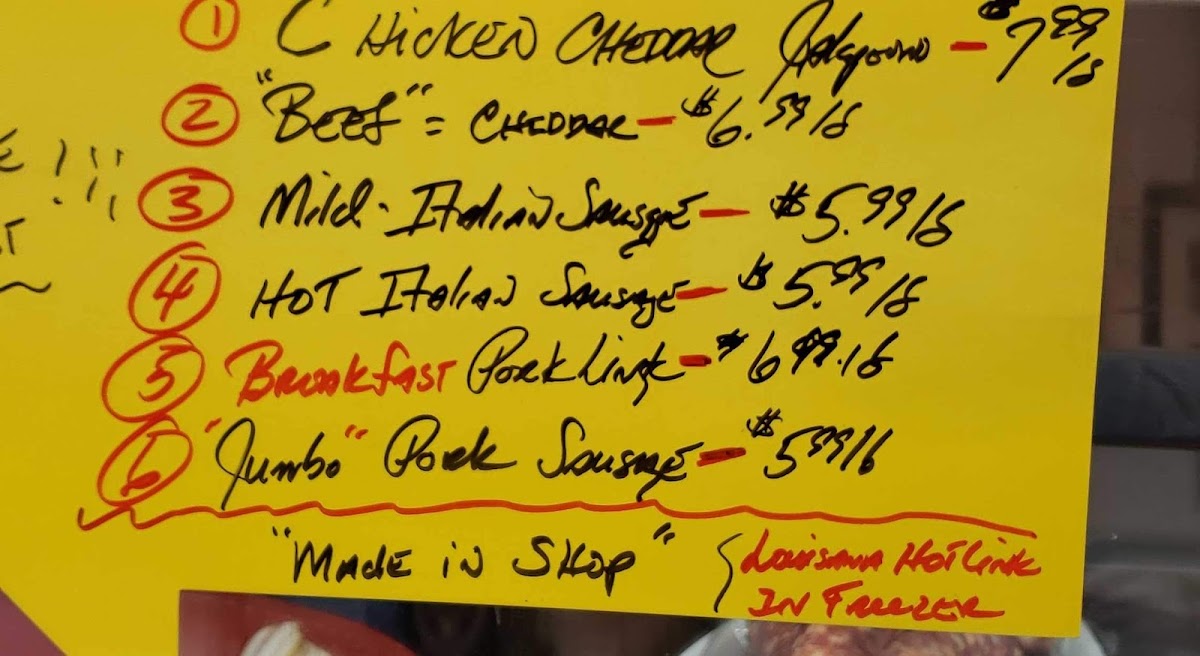 1 CHICKEN CHEDDAR Jalapeno - $7.99 lb
2 "BEEF" = CHEDDAR - $6.99 lb
3 Mild - Italian Sausage - $5.99 lb
4 HOT Italian Sausage - $5.99 lb
5 Breakfast Pork Link - $6.99 lb
6 "Jumbo" Pork Sausage - $5.99 lb
"MADE in SHOP"
Louisiana HOT Link
IN Freezer